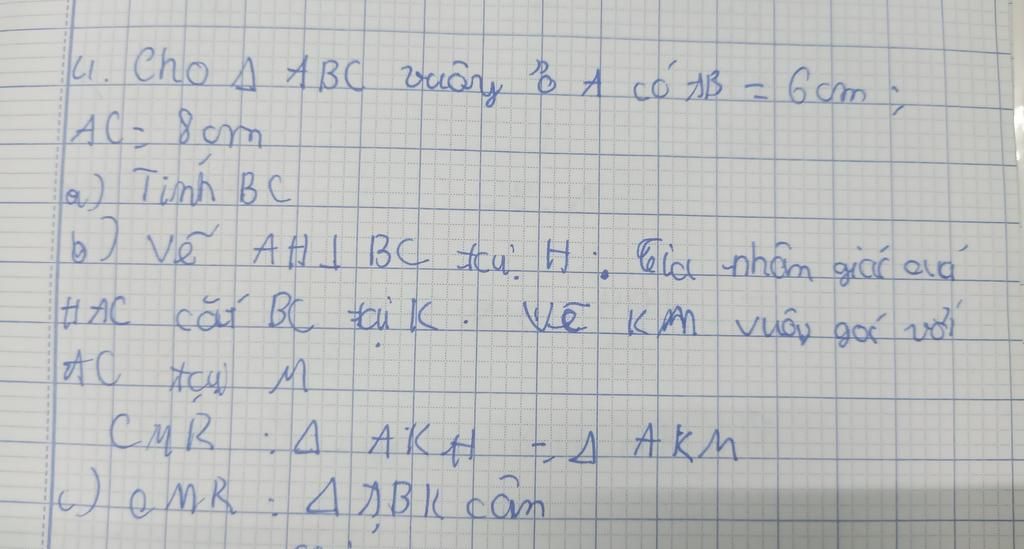 4. Cho Δ ABC vuông ở A có AB = 6cm ;
AC = 8cm
a) Tính BC
b) Vẽ AH ⊥ BC tại H. Tia phân giác của
HAC cắt BC tại K. Vẽ KM vuông góc với
AC tại M
CMR : Δ AKH = Δ AKM
c) CMR : Δ ABK cân